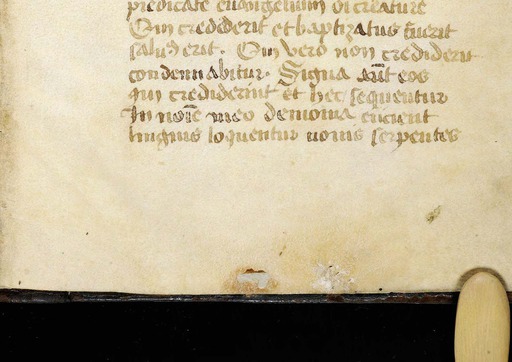 predicate euangelium oi creature
Qui crediderit et baptizatus fuerit
saluus erit. Qui vero non crediderit
condemnabitur. Signa aut eos
qui crediderint et hec sequentur
In noīe meo demonia eicient
linguis loquentur nouis serpentes